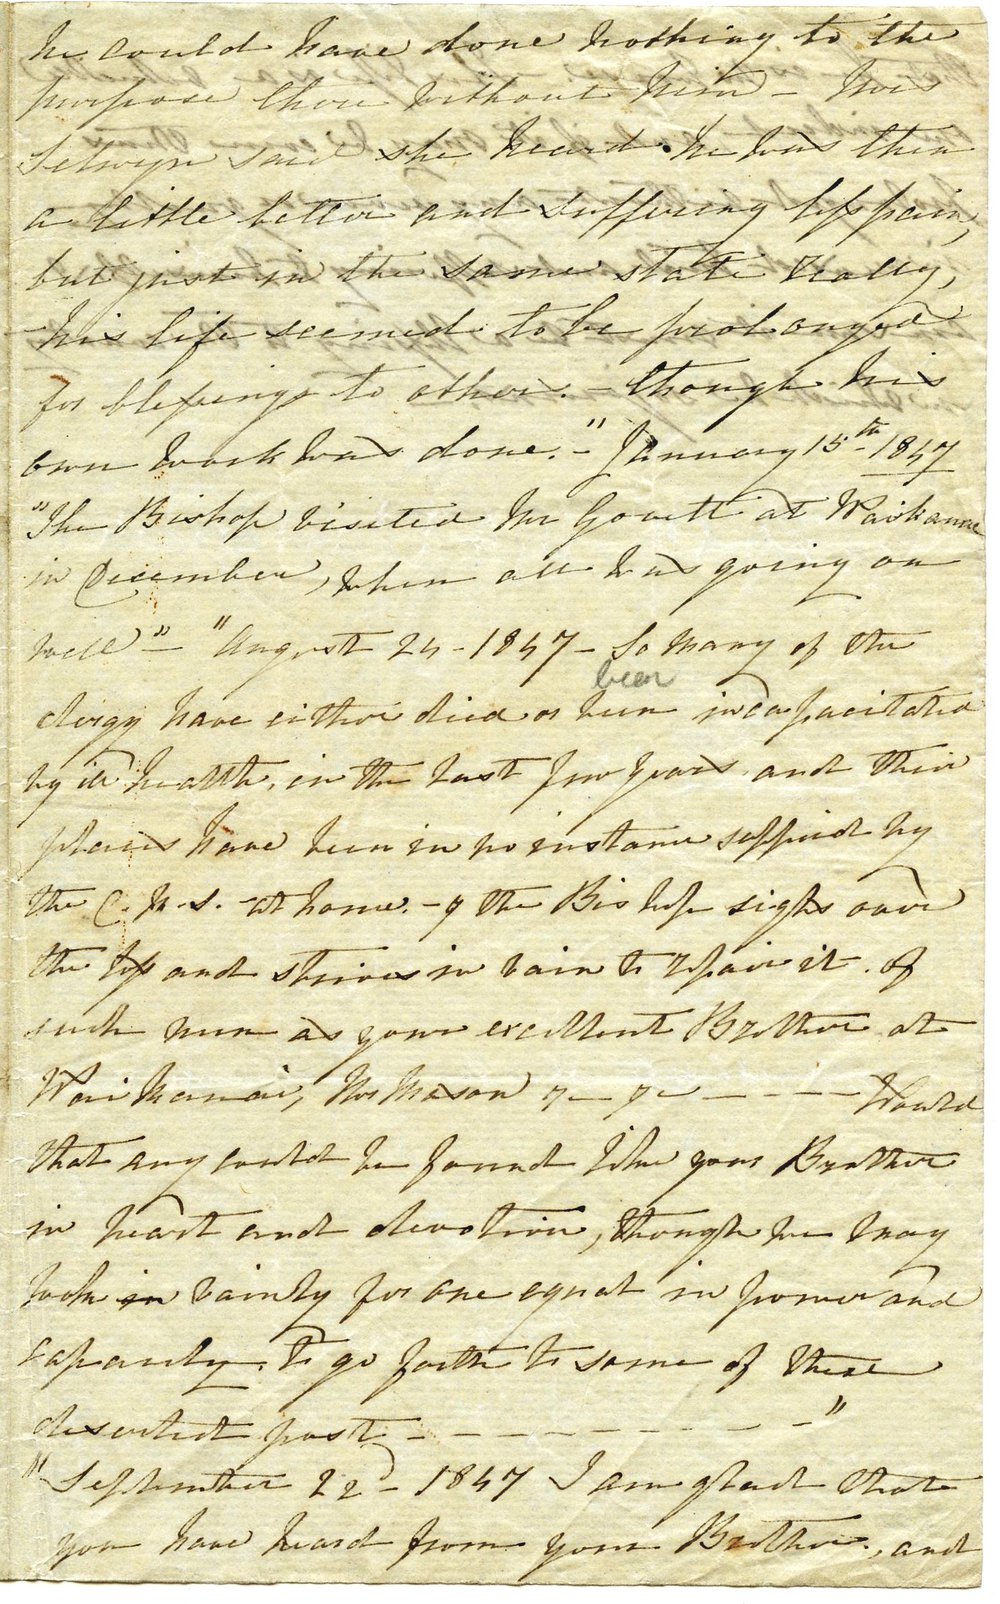 he could have done nothing to the
purpose there without him – Mrs
Selwyn said she heard he was then
a little better and suffering less pain,
but just in the same state really,
his life seemed to be prolonged
for blessings to others. – though his
own work was done." – January 15th – 1847
"The Bishop visited Mr Govett at Waikanae
in December, when all was going on
well" – "August 24 – 1847 – So many of the
been
clergy have either died or been incapacitated
by ill health, in the last few years and their
places have been in no instance supplied by
the C. M. S. – at home. – & the Bishop sighs over
the loss and strives in vain to repair it. of
such men as your excellent Brother at
Waikanai, Mr Mason &c – &c – – – – Would
that any could be found like your Brother
in heart and devotion, though we may
look in vainly for one equal in power and
capacity, to go forth to some of these
deserted post – – – – – – – – – "
"September 22d – 1847 I am glad that
you have heard from your Brother, and